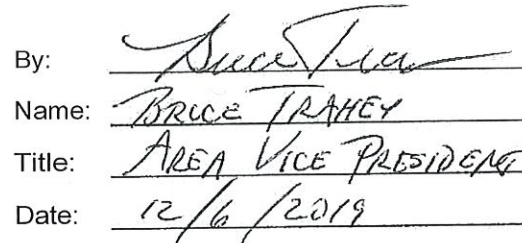 By:
Name: BRUCE TRAHEY
Title: AREA VICE PRESIDENT
Date: 12/6/2019